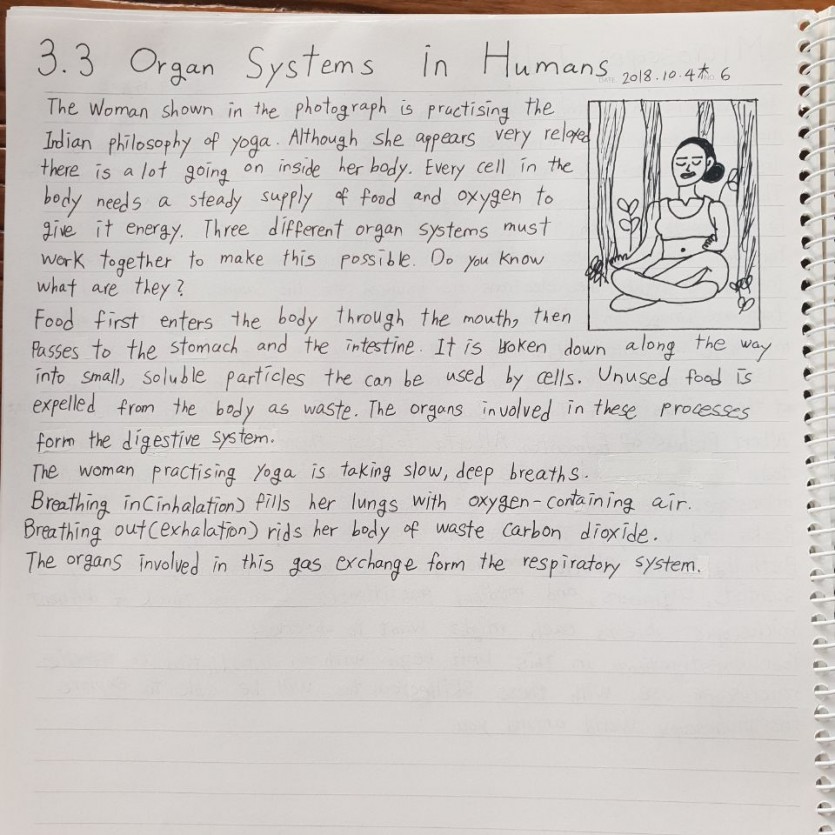 3.3 Organ Systems in Humans 2018.10.4木 6
The Woman shown in the photograph is practising the
Indian philosophy of yoga. Although she appears very relaxed
there is a lot going on inside her body. Every cell in the
body needs a steady supply of food and oxygen to
give it energy. Three different organ systems must
work together to make this possible. Do you know
what are they?
Food first enters the body through the mouth, then
Passes to the stomach and the intestine. It is broken down along the way
into small, soluble particles the can be used by cells. Unused food is
expelled from the body as waste. The organs involved in these processes
form the digestive system.
The woman practising yoga is taking slow, deep breaths.
Breathing in(inhalation) fills her lungs with oxygen-containing air.
Breathing out(exhalation) rids her body of waste carbon dioxide.
The organs involved in this gas exchange form the respiratory system.